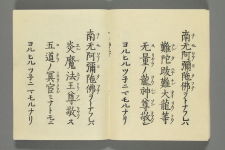 南无阿彌陀佛ノトナフレハ
難陀跋難大龍等
无量ノ龍神尊敬シ
ヨルヒルツ子ニマモルナリ
南无阿彌陀佛ノトナフレハ
炎魔法王尊敬ス
五道ノ冥官ミナトモニ
ヨルヒルツ子ニマモルナリ